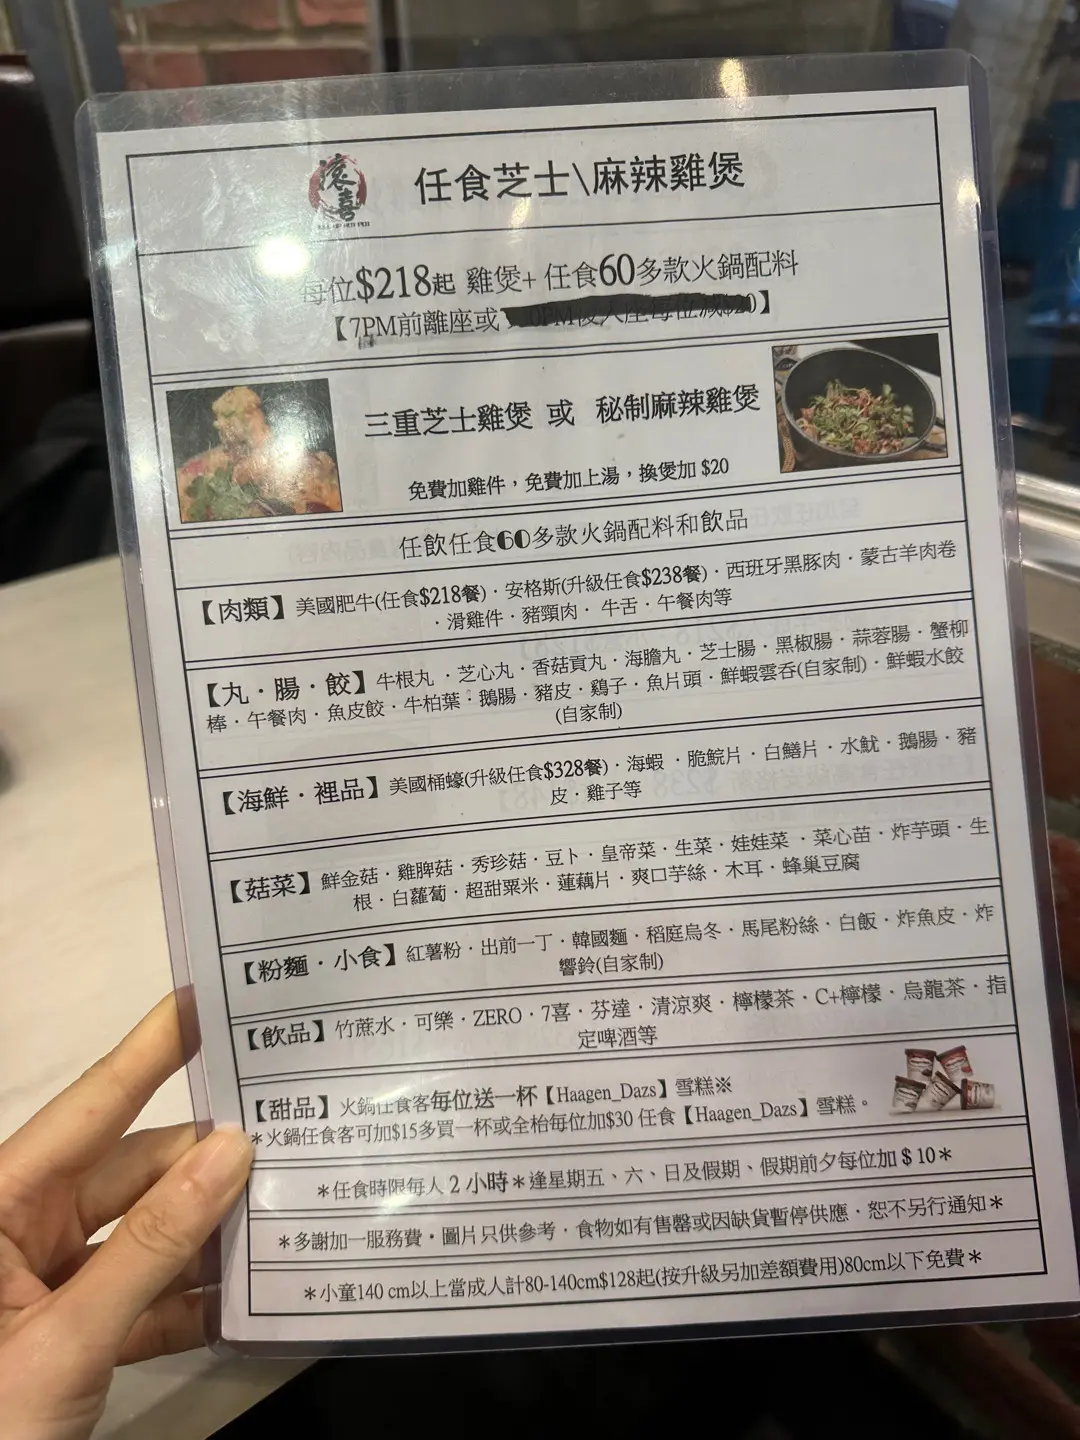 滾喜
任食芝士\麻辣雞煲
每位$218起 雞煲+ 任食60多款火鍋配料
【7PM前離座或 0PM後入座每位減$20】
三重芝士雞煲 或 秘制麻辣雞煲
免費加雞件，免費加上湯，換煲加 $20
任飲任食60多款火鍋配料和飲品
【肉類】美國肥牛(任食$218餐)．安格斯(升級任食$238餐)．西班牙黑豚肉．蒙古羊肉卷
．滑雞件．豬頸肉． 牛舌．午餐肉等
【丸．腸．餃】牛根丸 ．芝心丸．香菇貢丸．海膽丸．芝士腸．黑椒腸．蒜蓉腸．蟹柳
棒．午餐肉．魚皮餃．牛柏葉．鵝腸．豬皮．鷄子．魚片頭．鮮蝦雲吞(自家制)．鮮蝦水餃
(自家制)
【海鮮．裡品】美國桶蠔(升級任食$328餐)．海蝦 ．脆鯇片．白鱔片．水魷．鵝腸．豬
皮．雞子等
【菇菜】鮮金菇．雞脾菇．秀珍菇．豆卜．皇帝菜．生菜．娃娃菜 ．菜心苗．炸芋頭．生
根．白蘿蔔．超甜粟米．蓮藕片．爽口芋絲．木耳．蜂巢豆腐
【粉麵．小食】紅薯粉．出前一丁．韓國麵．稻庭烏冬．馬尾粉絲．白飯．炸魚皮．炸
響鈴(自家制)
【飲品】竹蔗水．可樂．ZERO．7喜．芬達．清涼爽．檸檬茶．C+檸檬．烏龍茶．指
定啤酒等
【甜品】火鍋任食客每位送一杯【Haagen_Dazs】雪糕※
＊火鍋任食客可加$15多買一杯或全枱每位加$30 任食【Haagen_Dazs】雪糕。
＊任食時限每人 2 小時＊逢星期五、六、日及假期、假期前夕每位加 $ 10＊
＊多謝加一服務費。圖片只供參考．食物如有售罄或因缺貨暫停供應．恕不另行通知＊
＊小童140 cm以上當成人計80-140cm$128起(按升級另加差額費用)80cm以下免費＊